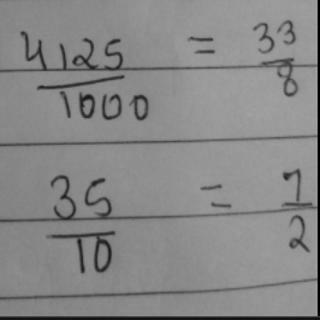 4125/1000 = 33/8
35/10 = 7/2